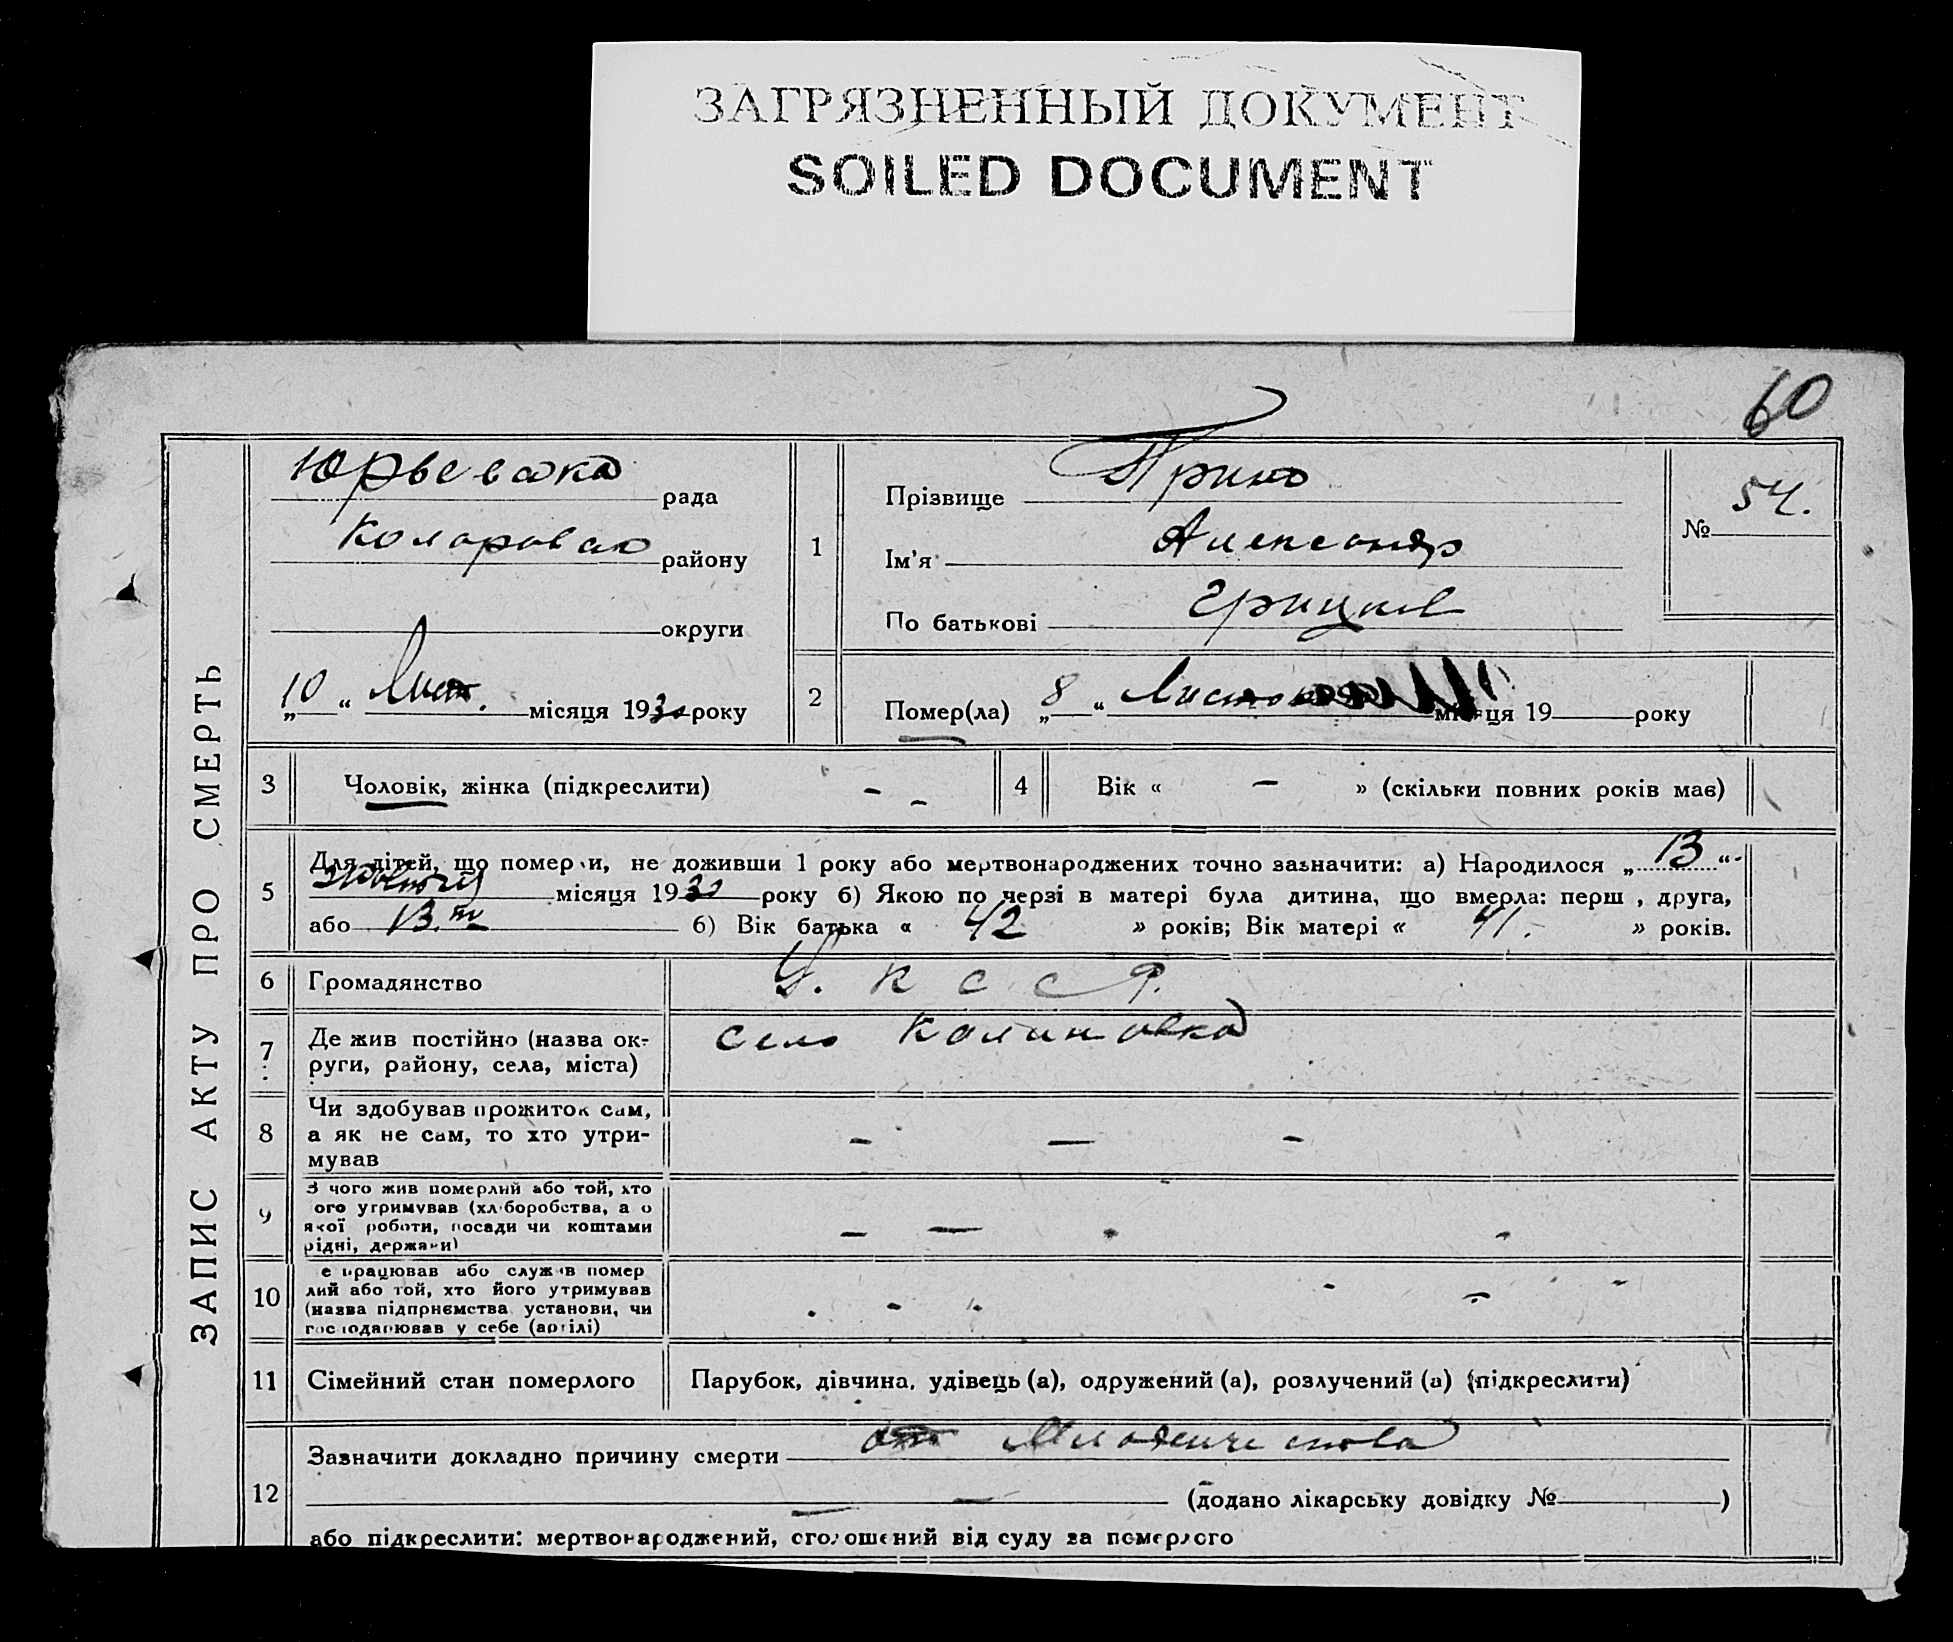 ЗАГРЯЗНЕННЫЙ ДОКУМЕНТ
SOILED DOCUMENT
60
ЗАПИС АКТУ ПРО СМЕРТЬ
Юрьевака рада
Коларовак району
округи
„10“ Лист. місяця 1930 року
1
Прізвище Трино
Ім'я Александр
По батькові Грицков
№ 54.
2
Помер(ла) „8“ Листо місяця 19 року
3 Чоловік, жінка (підкреслити) - -
4 Вік « - » (скільки повних років має)
5
Для дітей, що померли, не доживши 1 року або мертвонароджених точно зазначити: а) Народилося „13“
Жовтня місяця 1930 року б) Якою по черзі в матері була дитина, що вмерла: перш , друга,
або 13.та б) Вік батька « 42 » років; Вік матері « 41. » років.
6 Громадянство У. К С С Р.
7
Де жив постійно (назва ок-
руги, району, села, міста)
село Калиновка
8
Чи здобував прожиток сам,
а як не сам, то хто утри-
мував
- — -
9
З чого жив померлий або той, хто
ого утримував (хліборобства, а о
якої роботи, посади чи коштами
рідні, держави)
- —
10
е працював або служив помер
лий або той, хто його утримував
(назва підприємства установи, чи
господарював у себе (артілі)
11 Сімейний стан померлого Парубок, дівчина, удівець (а), одружений (а), розлучений (а) (підкреслити)
12
Зазначити докладно причину смерти от Младенчества
— — (додано лікарську довідку № )
або підкреслити: мертвонароджений, оголошений від суду за померлого